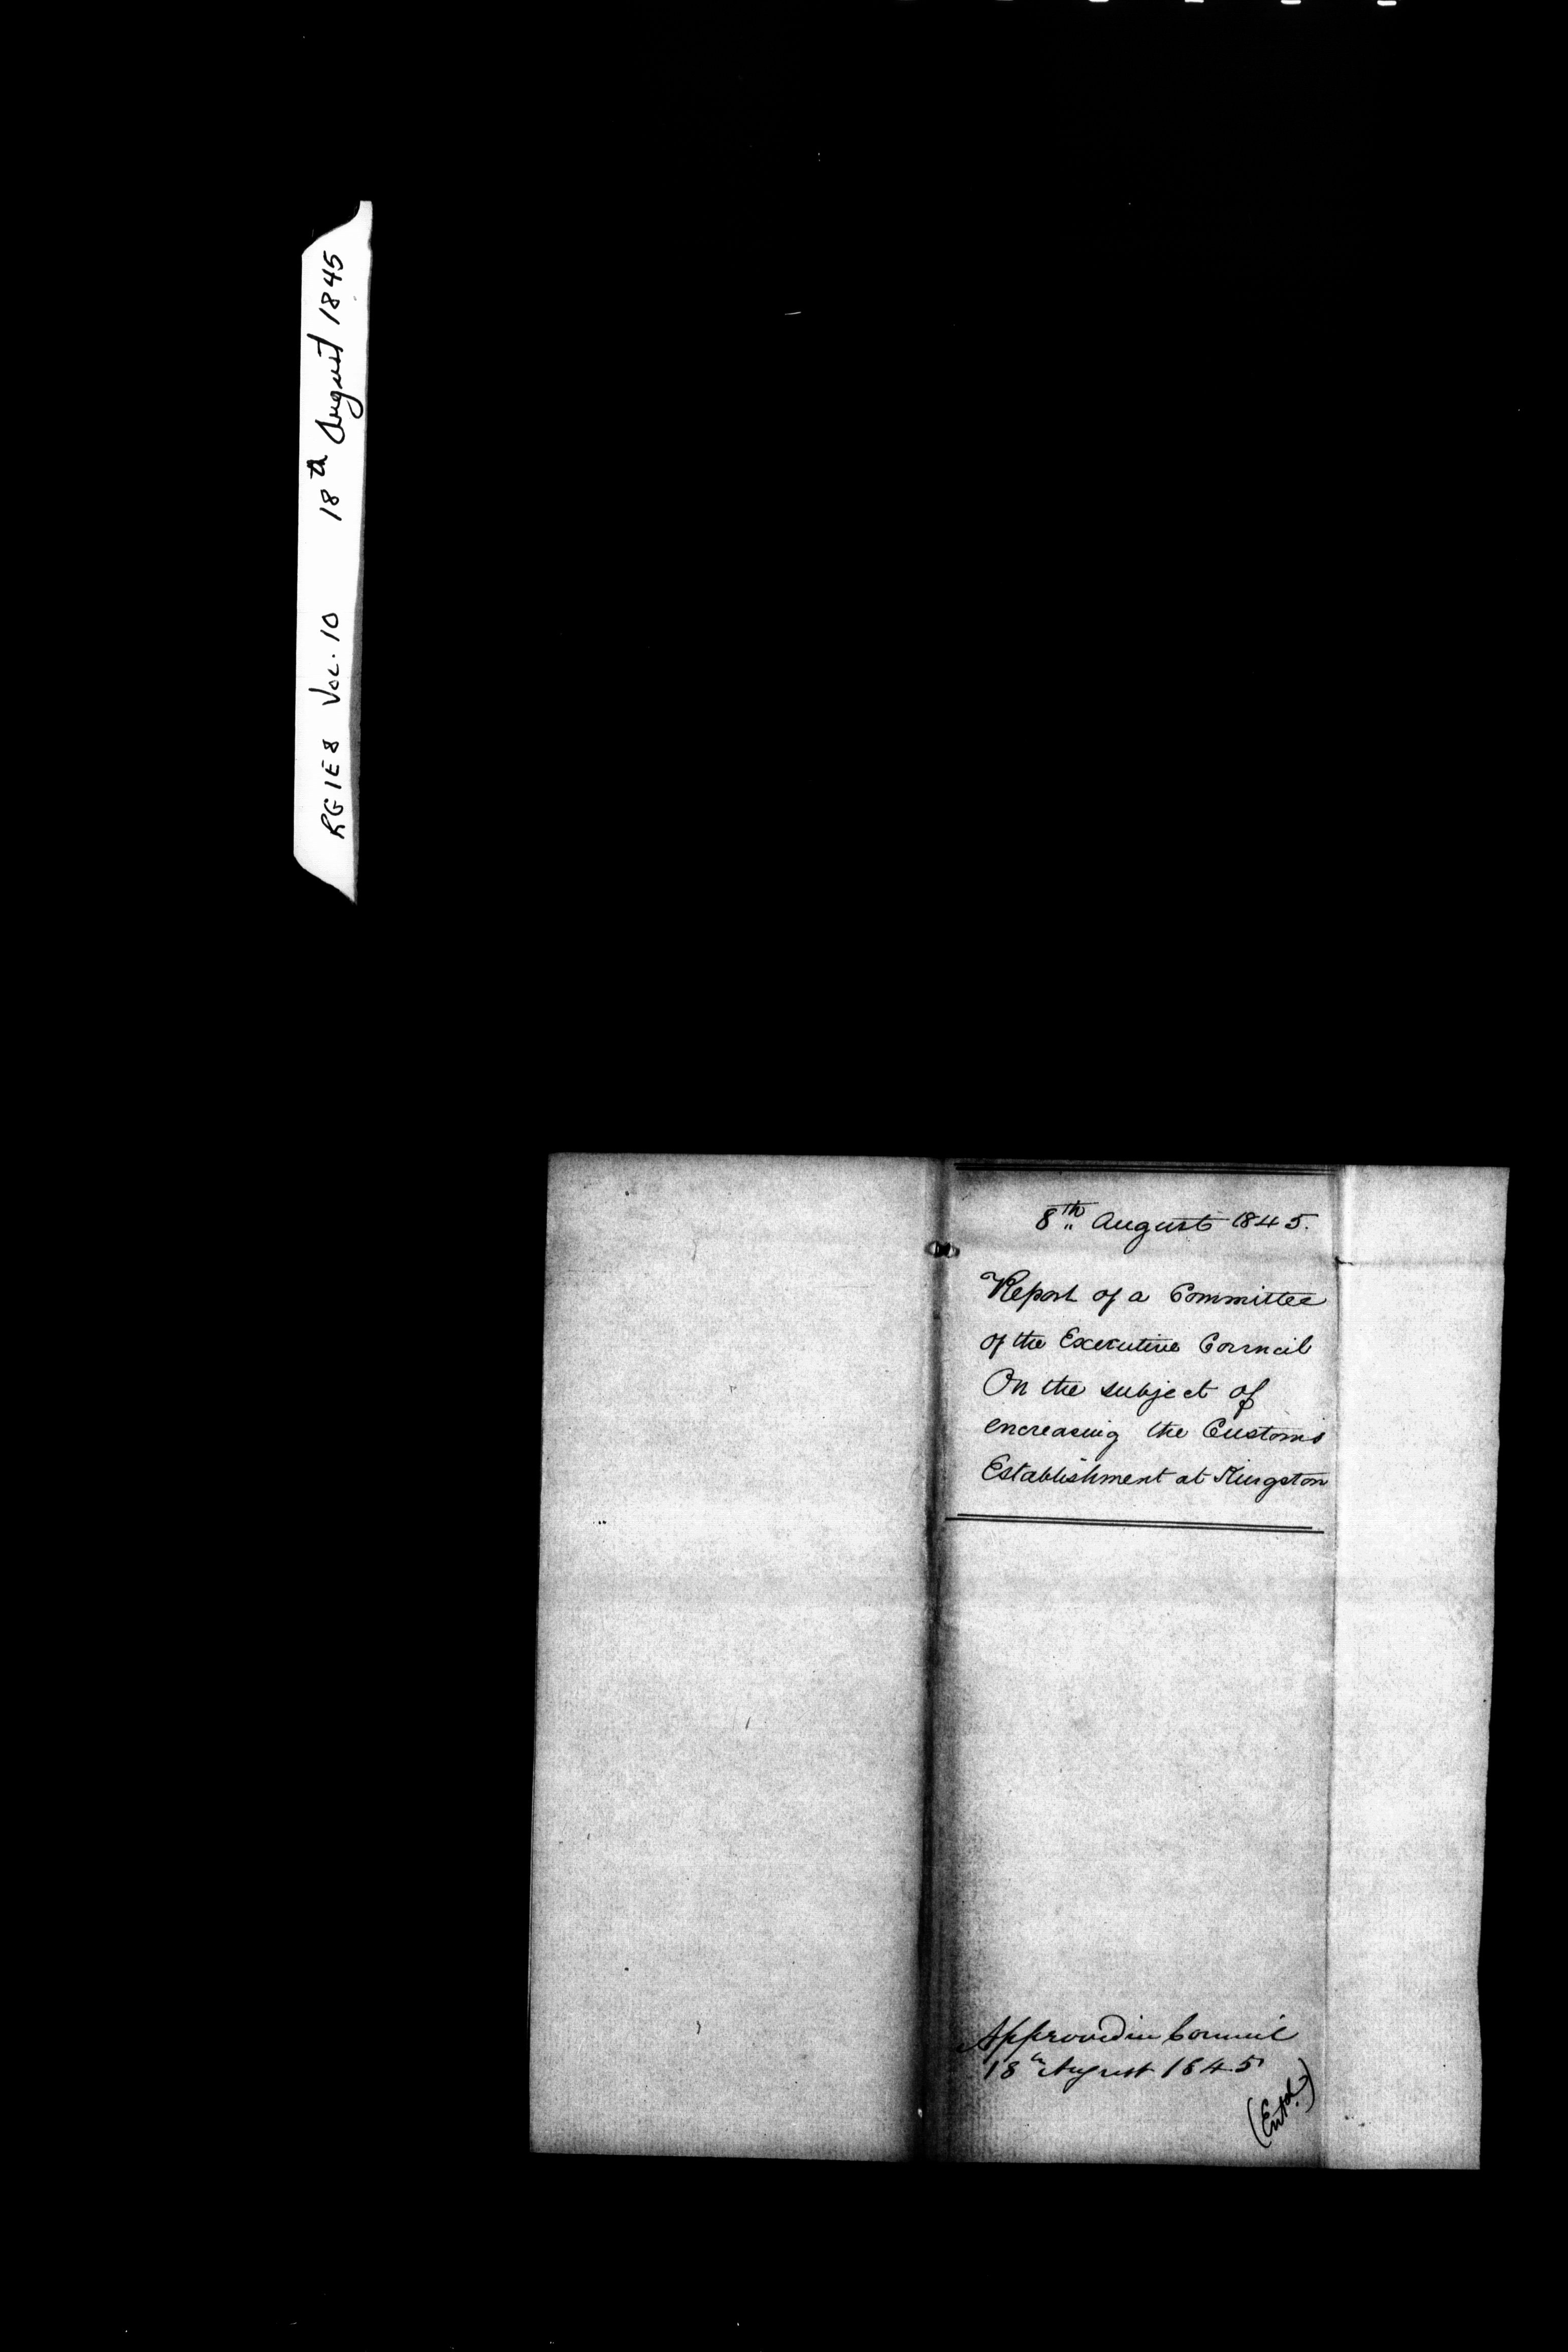 RG1E8 Vol. 10 18th August 1845
8th August 1845.
Report of a Committee
of the Executive Council
On the subject of
encreasing the Customs
Establishment at Kingston
Approved in Council
18th August 1845
(Entd.)